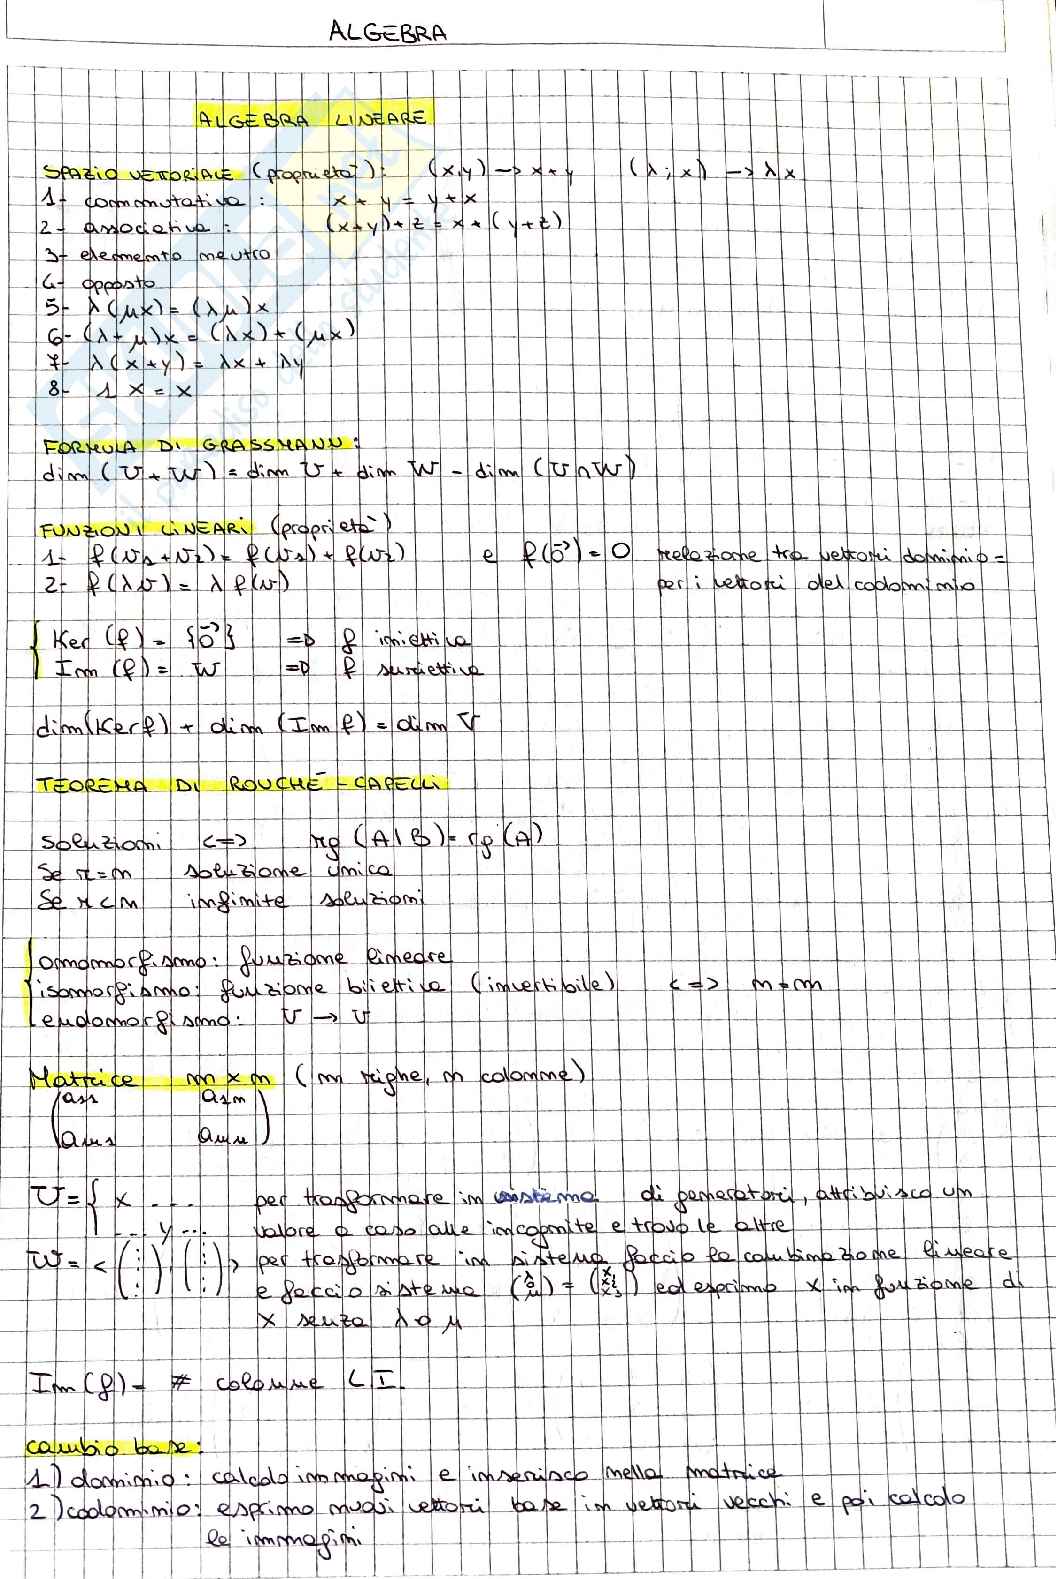 ALGEBRA
ALGEBRA LINEARE
SPAZIO VETTORIALE (proprietà): (x,y) → x+y (λ;x) → λx
1- commutativa: x+y = y+x
2- associativa: (x+y)+z = x+(y+z)
3- elemento neutro
4- opposto
5- λ(μx) = (λμ)x
6- (λ+μ)x = (λx)+(μx)
7- λ(x+y) = λx + λy
8- 1 x = x
FORMULA DI GRASSMANN:
dim (U+W) = dim U + dim W - dim (U∩W)
FUNZIONI LINEARI (proprietà)
1- f(v₁+v₂) = f(v₁) + f(v₂) e f(0⃗) = 0 relazione tra vettori dominio =
2- f(λv) = λ f(v) per i vettori del codominio
Ker (f) = {0⃗} => f iniettiva
Im (f) = W => f suriettiva
dim(Ker f) + dim (Im f) = dim V
TEOREMA DI ROUCHÉ-CAPELLI
soluzioni <=> rg (A|B) = rg (A)
Se r=n soluzione unica
Se r<n infinite soluzioni
omomorfismo: funzione lineare
isomorfismo: funzione biiettiva (invertibile) <=> m=n
endomorfismo: V → V
Matrice m x n (m righe, n colonne)
(a₁₁ a₁ₙ)
(aₘ₁ aₘₙ)
U = { x ... per trasformare in sistema di generatori, attribuisco un
... y ... valore a caso alle incognite e trovo le altre
W = < (⋮), (⋮) > per trasformare in sistema faccio la combinazione lineare
e faccio sistema (λ μ) = (x₁ x₂ x₃) ed esprimo x in funzione di
x senza λ o μ
Im (f) = # colonne L I.
cambio base:
1) dominio: calcolo immagini e inserisco nella matrice
2) codominio: esprimo nuovi vettori base in vettori vecchi e poi calcolo
le immagini